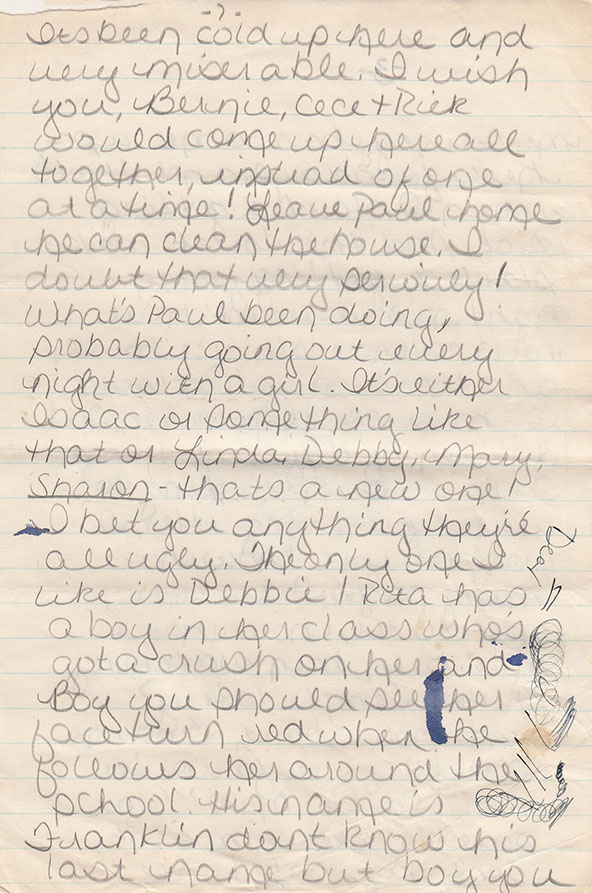 -2-
Its been cold up here and
very miserable. I wish
you, Bernie, Cece + Rick
would come up here all
together, instead of one
at a time! Leave Paul home
he can clean the house. I
doubt that very seriouly!
What's Paul been doing,
probably going out every
night with a girl. It's either
Isaac or something like
that or Linda, Debby, Mary,
Sharon - thats a new one!
I bet you anything they're
all ugly. The only one I
like is Debbie! Rita has
a boy in her class who's
got a crush on her and
Boy you should see her
face turn red when he
follows her around the
school. His name is
Franklin dont know his
last name but boy you
Dear